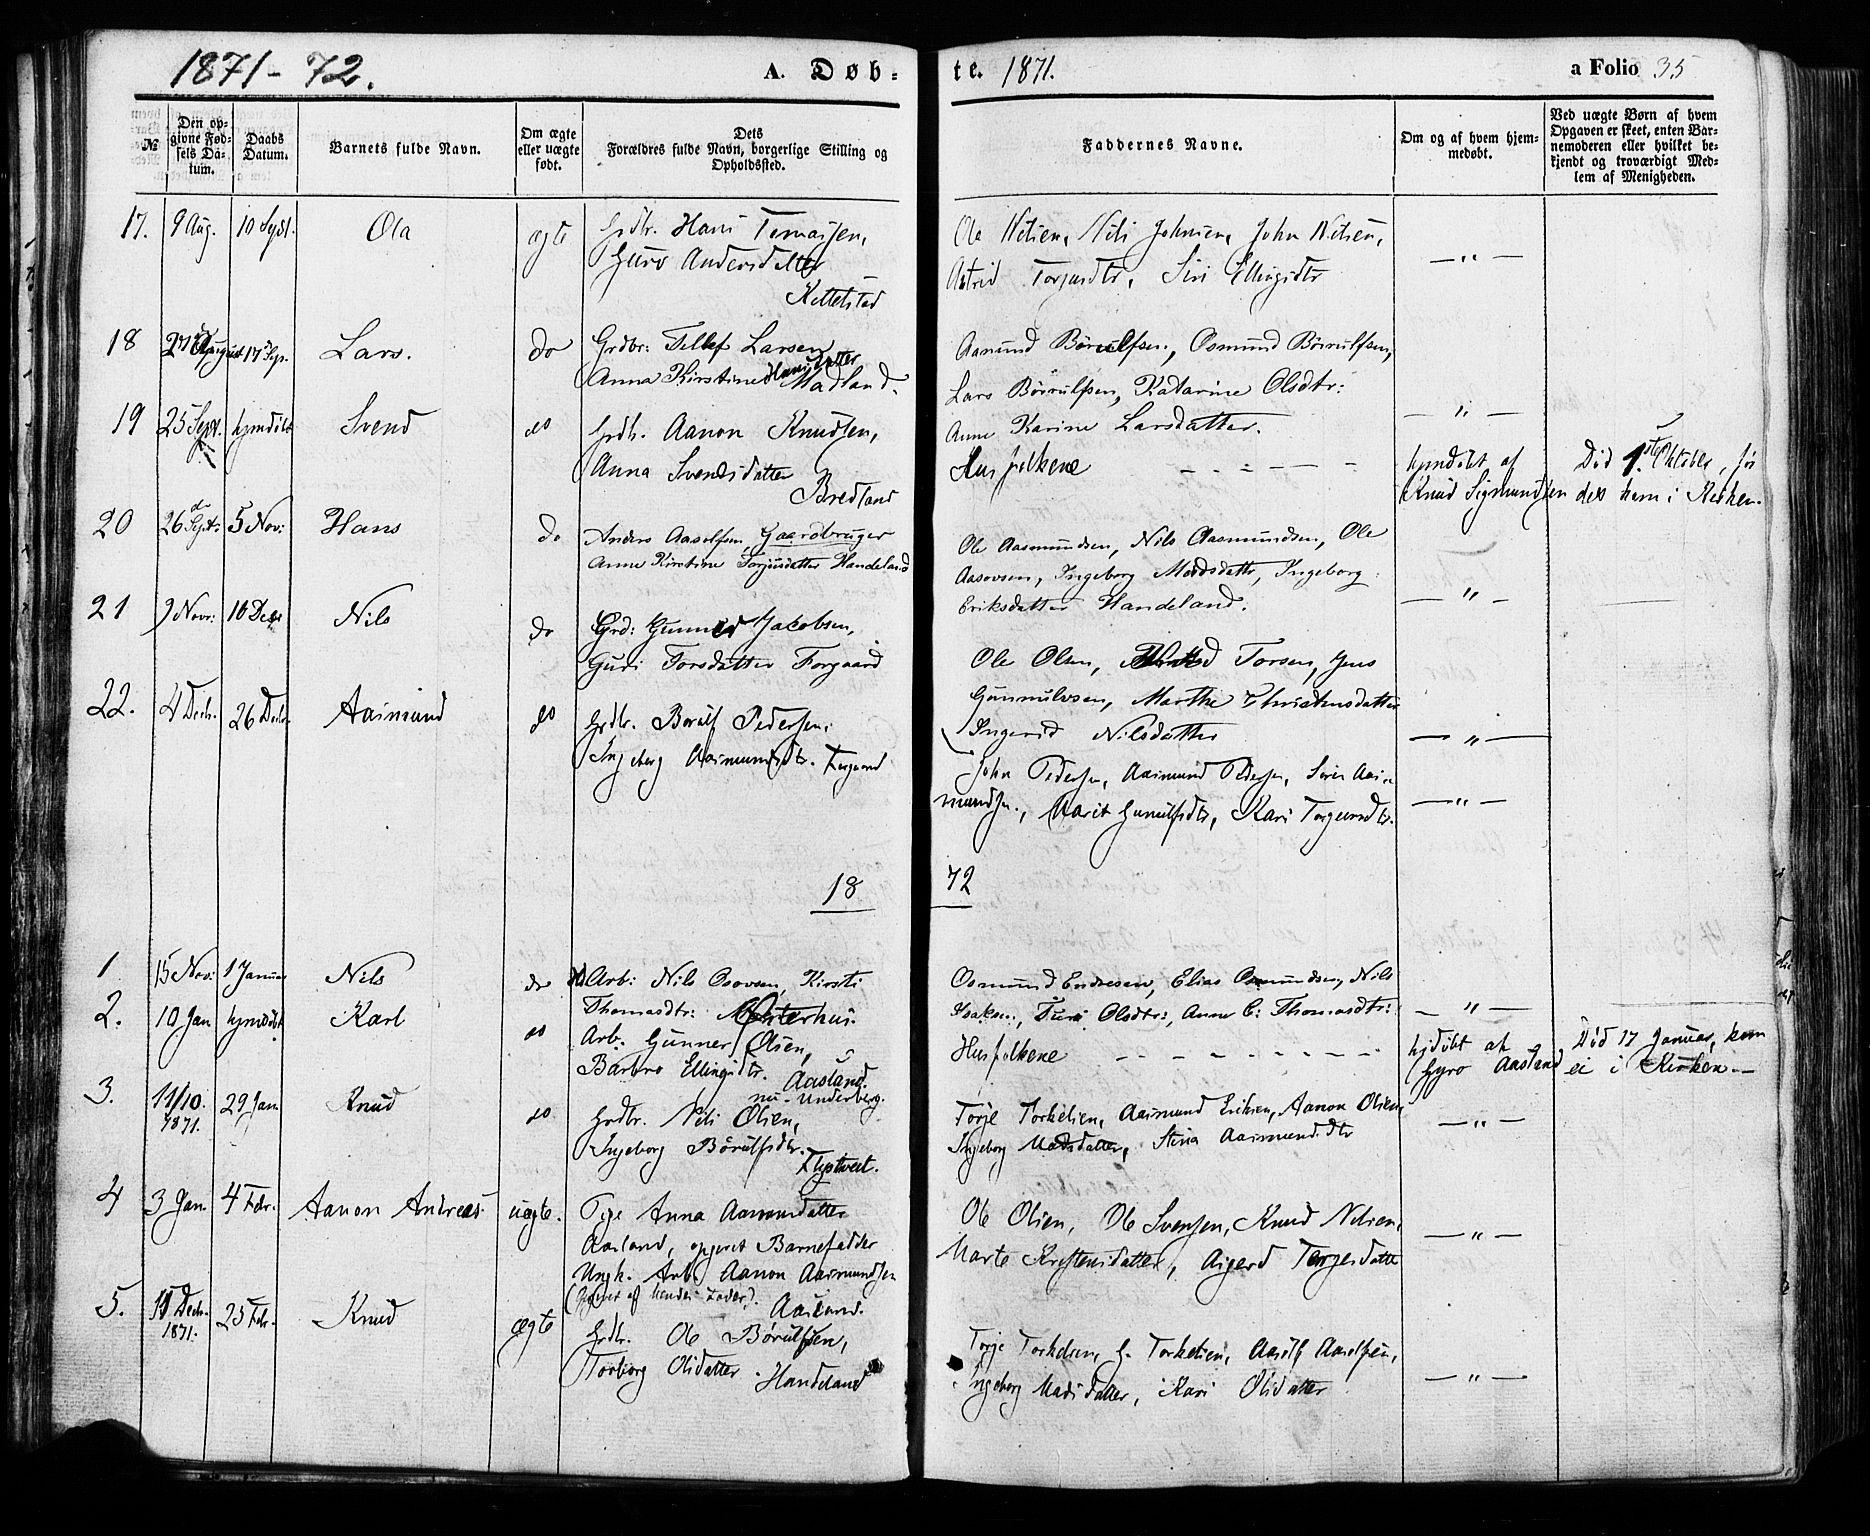 1871-72.
A. Døb-
te. 1871.
a Folio 35
№
Den op-
givne Fød-
sels Da-
tum.
Daabs
Datum.
Barnets fulde Navn.
Om ægte
eller uægte
født.
Dets
Forældres fulde Navn, borgerlige Stilling og
Opholdssted.
Faddernes Navne.
Om og af hvem hjem-
medøbt.
Ved uægte Børn af hvem
Opgaven er skeet, enten Bar-
nemoderen eller hvilket be-
kjendt og troværdigt Med-
lem af Menigheden.
17. 9 Aug. 10 Sept. Ola ægte Grdbr. Hans Tomassen,
Guro Andersdatter
Kittelstad
Ole Nilsen, Nils Johnsen, John Nilsen,
Astrid Torjusdtr, Siri Ellingsdtr
— " —
18 27 August 17 Sep. Lars. do Grdbr: Tellef Larsen
Anna Kirstine Hansdatter
Madland.
Aanund Børulfsen, Osmund Børrulfsen,
Lars Børrulfsen, Katarine Olsdtr:
Anne Karine Larsdatter.
— " —
19 25 Sept. hjmdøbt Svend do Grdbr. Aanon Knudsen,
Anna Svendsdatter
Bredland
Husfolkene
hjmdøbt af
Knud Sigmundsen
Død 1ste Oktober, før
det kom i Kirken.
20 26 Sept: 5 Nov: Hans do Anders Aasolfsen, Gaardbruger
Anne Kirstine Torjusdatter Handeland
Ole Aasmundsen, Nils Aasmundsen, Ole
Aasovsen, Ingeborg Madsdattr, Ingeborg
Eriksdatter Handeland.
— " —
21 9 Novr: 10 Decr Nils do Grd: Gunned Jakobsen,
Guri Torsdatter Torgaard
Ole Olsen, Torsen, Jens
Gunnulvsen, Marthe Christensdatter
Ingerid Nilsdatter
— " —
22. 4 Decb. 26 Decbr. Aasmund do Grdbr. Børulf Pedersen,
Ingeborg Aasmundsdtr.
John Pedersen, Aasmund Pedersen, Aas-
mundsen., Marit Gunulfsdtr, Kari Torgrimsdtr.
— " —
18
72
1 15 Nov: 1 Januar Nils do Arb: Nils Osovsen, Kirsti
Thomasdtr: Østerhus.
Osmund Endresen, Elias Osmundsen, Nils
Isaksen, Turi Olsdtr:, Anne C: Thomasdtr:
— " —
2. 10 Jan hjmdøbt Karl do Arb: Gunner Olsen,
Barbro Ellingsdtr. Aasland.
nu - Underberg.
Husfolkene
hjdøbt af
Gyro Aasland
Død 17 Januar, kom
ei i Kirken.—
3. 11/10. 1871. 29 Jan. Knud do Grdbr. Nils Olsen,
Ingeborg Børulfsdtr.
Flystveit.
Torje Torkelsen, Aasmund Eriksen, Aanon Olsen,
Ingeborg Madsdatter, Stina Aasmundsdtr
— " —
4 3 Jan. 4 Febr. Aanon Andreas uægte. Pige Anna Aanonsdatter
Aasland, opgivet Barnefader
Ungk. Arb. Aanon Aasmundsen
(Opgivet af hendes Fader). Aasland.
Ole Olsen, Ole Svensen, Knud Nilsen,
Marte Kristensdatter, Asgerd Torjesdatter
— " —
5. 11 Decb. 1871. 25 Febr. Knud ægte Grdbr. Ole Børulfsen,
Torborg Olsdatter. Handeland
Torje Torkelsen, G. Torkelsen, Aasulf Aasolfsen,
Ingeborg Madsdatter, Kari Olsdatter
— " —